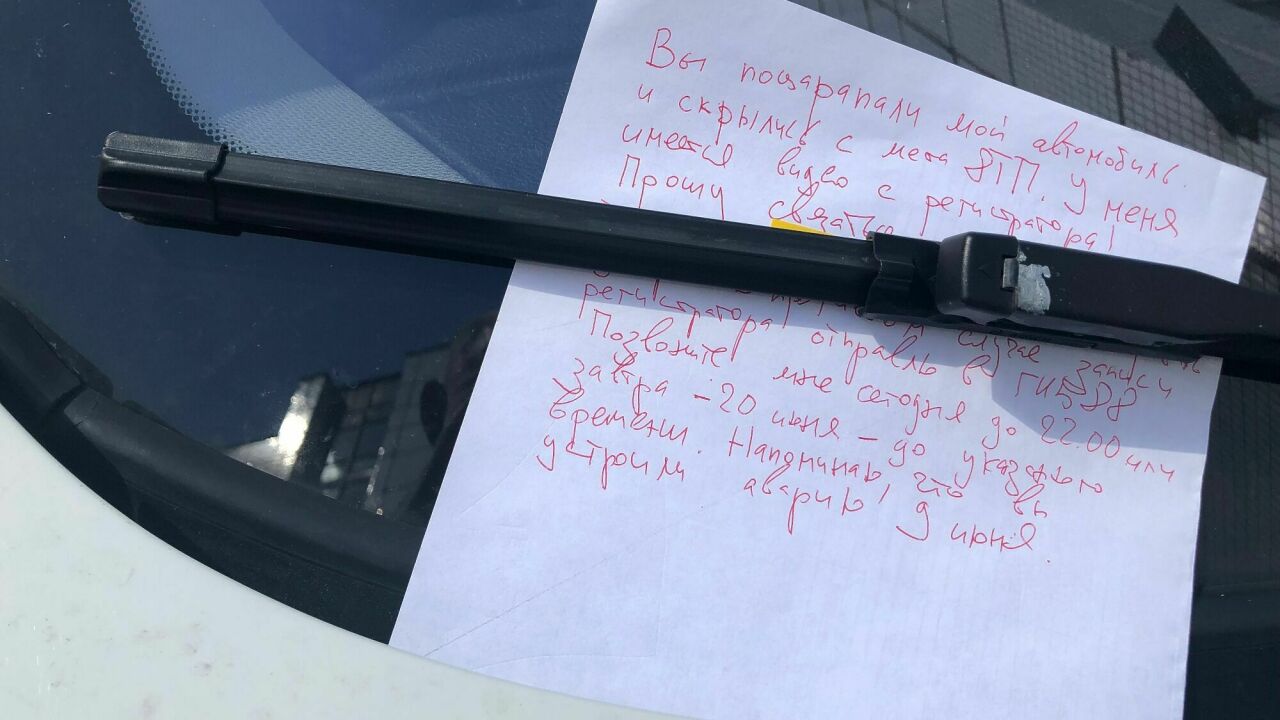 Вы поцарапали мой автомобиль.
и скрылись с места ДТП. У меня
имеется видео с регистратора!
Прошу связаться
случае записи
регистратора отправлю в ГИБДД
Позвоните мне сегодня до 22.00 или
завтра - 20 июня - до указаного
времени. Напоминаю, что вы
устроили аварию 9 июня.